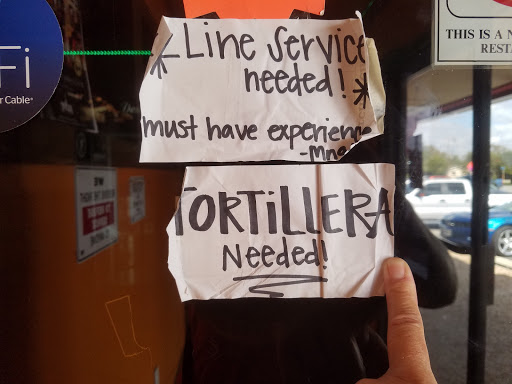 Fi
r Cable®
*Line Service
needed! *
must have experience
-Mn
TORTiLLERA
Needed!
THIS IS A N
REST